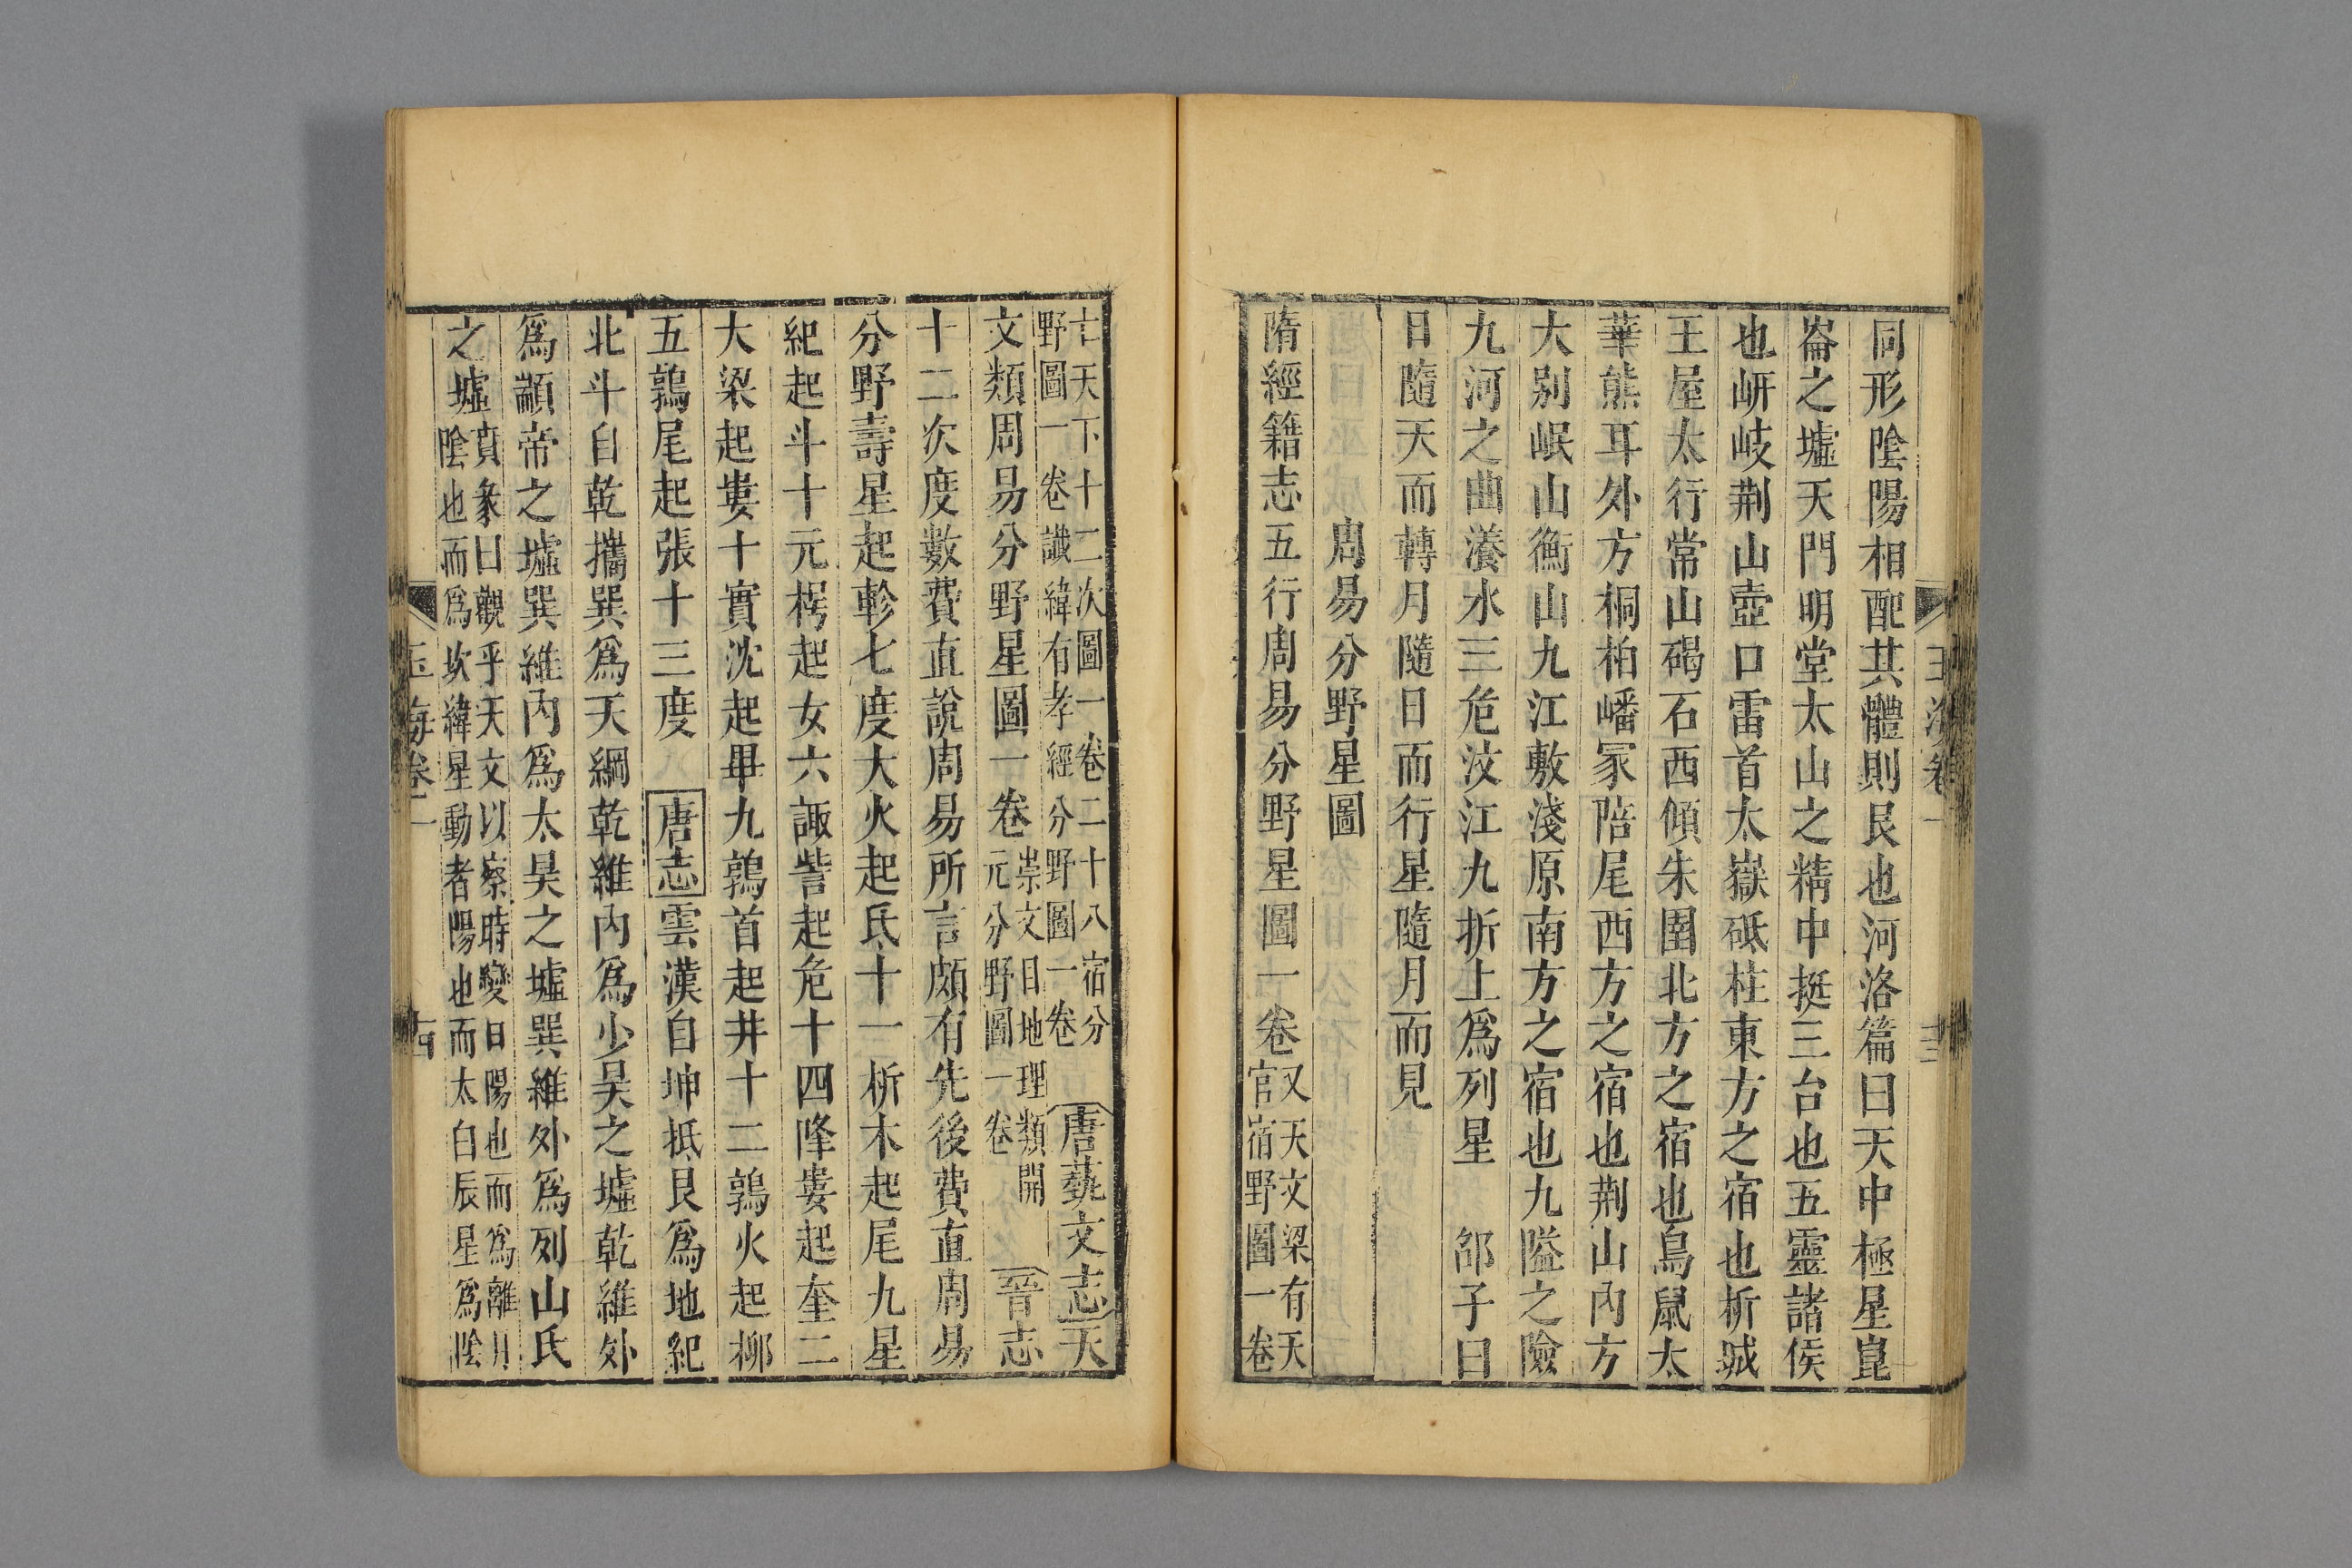 同形陰陽相配其體則艮也河洛篇曰天中極星崑
崙之墟天門明堂太山之精中挺三台也五靈諸侯
也岍岐荆山壺口雷首太嶽砥柱東方之宿也析城
王屋太行常山碣石西傾朱圉北方之宿也鳥鼠太
華熊耳外方桐柏嶓冢陪尾西方之宿也荆山內方
大别岷山衡山九江敷淺原南方之宿也九隘之險
九河之曲瀁水三危汶江九折上爲列星 邵子曰
日隨天而轉月隨日而行星隨月而見
周易分野星圖
隋經籍志五行周易分野星圖一卷又天文梁有天官宿野圖一卷
亡天下十二次圖一卷二十八宿分野圖一卷讖緯有孝經分野圖一卷唐藝文志天
文類周易分野星圖一卷崇文目地理類開元分野圖一卷晉志
十二次度數費直說周易所言頗有先後費直周易
分野壽星起軫七度大火起氐十一析木起尾九星
紀起斗十元枵起女六諏訾起危十四降婁起奎二
大梁起婁十實沈起畢九鶉首起井十二鶉火起柳
五鶉尾起張十三度 唐志雲漢自坤抵艮爲地紀
北斗自乾攜巽爲天綱乾維內爲少昊之墟乾維外
爲顓帝之墟巽維內爲太昊之墟巽維外爲列山氏
之墟賁彖曰觀乎天文以察時變日陽也而爲離月陰也而爲坎緯星動者陽也而太白辰星爲陰
玉海卷二